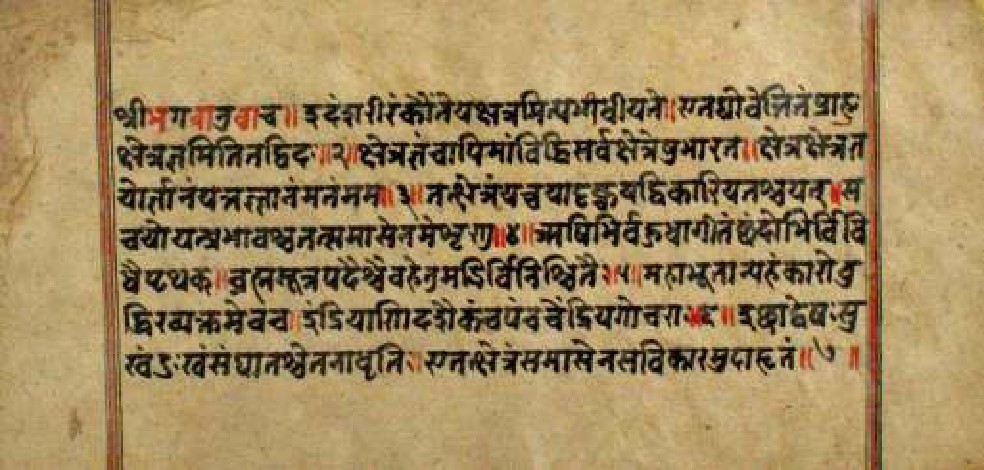 श्रीभगवानुवाच॥ इदंशरीरंकौंतेयक्षेत्रमित्यभीधीयते॥ एतद्योवेत्तितंप्राहुः
क्षेत्रज्ञमितितद्विदः॥२॥ क्षेत्रज्ञंचापिमांविद्धिसर्वक्षेत्रेषुभारत॥ क्षेत्रक्षेत्रज्ञ
योर्ज्ञानंयत्तज्ज्ञानंमतंमम॥३॥ तत्क्षेत्रंयच्चयादृक्चयद्विकारियतश्चयत्॥ स
चयोयत्प्रभावश्चतत्समासेनमेशृणु॥४॥ ऋषिभिर्बहुधागीतंछंदोभिर्विवि
धैःपृथक्॥ ब्रह्मसूत्रपदैश्चैवहेतुमद्भिर्विनिश्चितैः॥५॥ महाभूतान्यहंकारोबु
द्धिरव्यक्तमेवच॥ इंद्रियाणिदशैकंचपंचचेंद्रियगोचराः॥६॥ इच्छाद्वेषःसु
खंदुःखंसंघातश्चेतनाधृतिः॥ एतत्क्षेत्रंसमासेनसविकारमुदाहृतं॥७॥